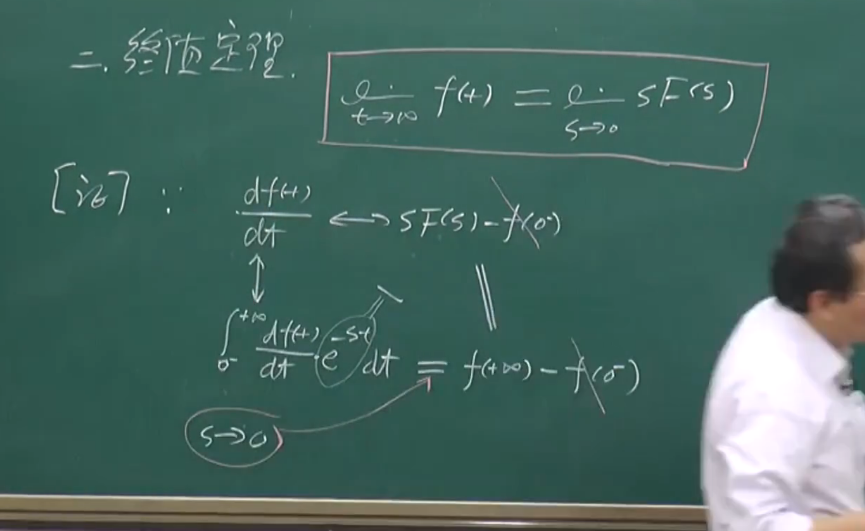 二. 终值定理.
lim t→∞ f(t) = lim s→0 sF(s)
[证] ∵ df(t)/dt ↔ sF(s) - f(0⁻)
↕ ‖
∫0⁻^+∞ df(t)/dt · e^-st dt = f(+∞) - f(0⁻)
1
s→0